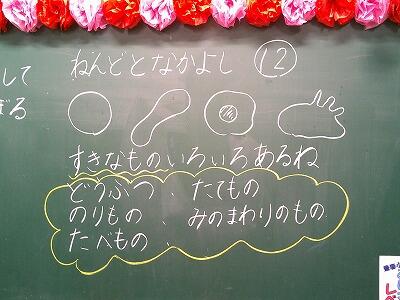 して
ぼる
ねんどとなかよし ⑫
すきなものいろいろあるね
どうぶつ、たてもの
のりもの、みのまわりのもの
たべもの、